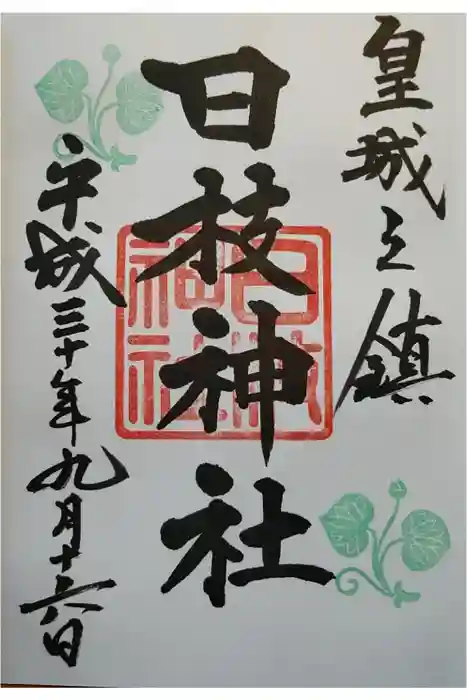 皇城之鎮
日枝神社
日枝神社
平成三十年九月十六日